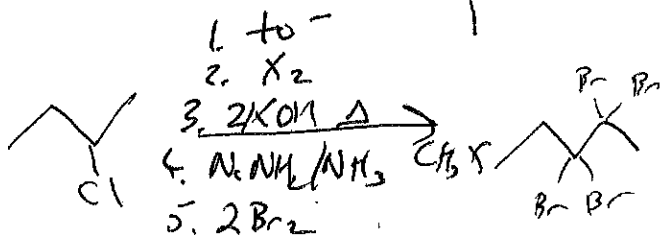 1. to⁻
2. X₂
3. 2KOH Δ
4. NaNH₂/NH₃
5. 2Br₂
Cl
CH₃
Br Br
Br Br